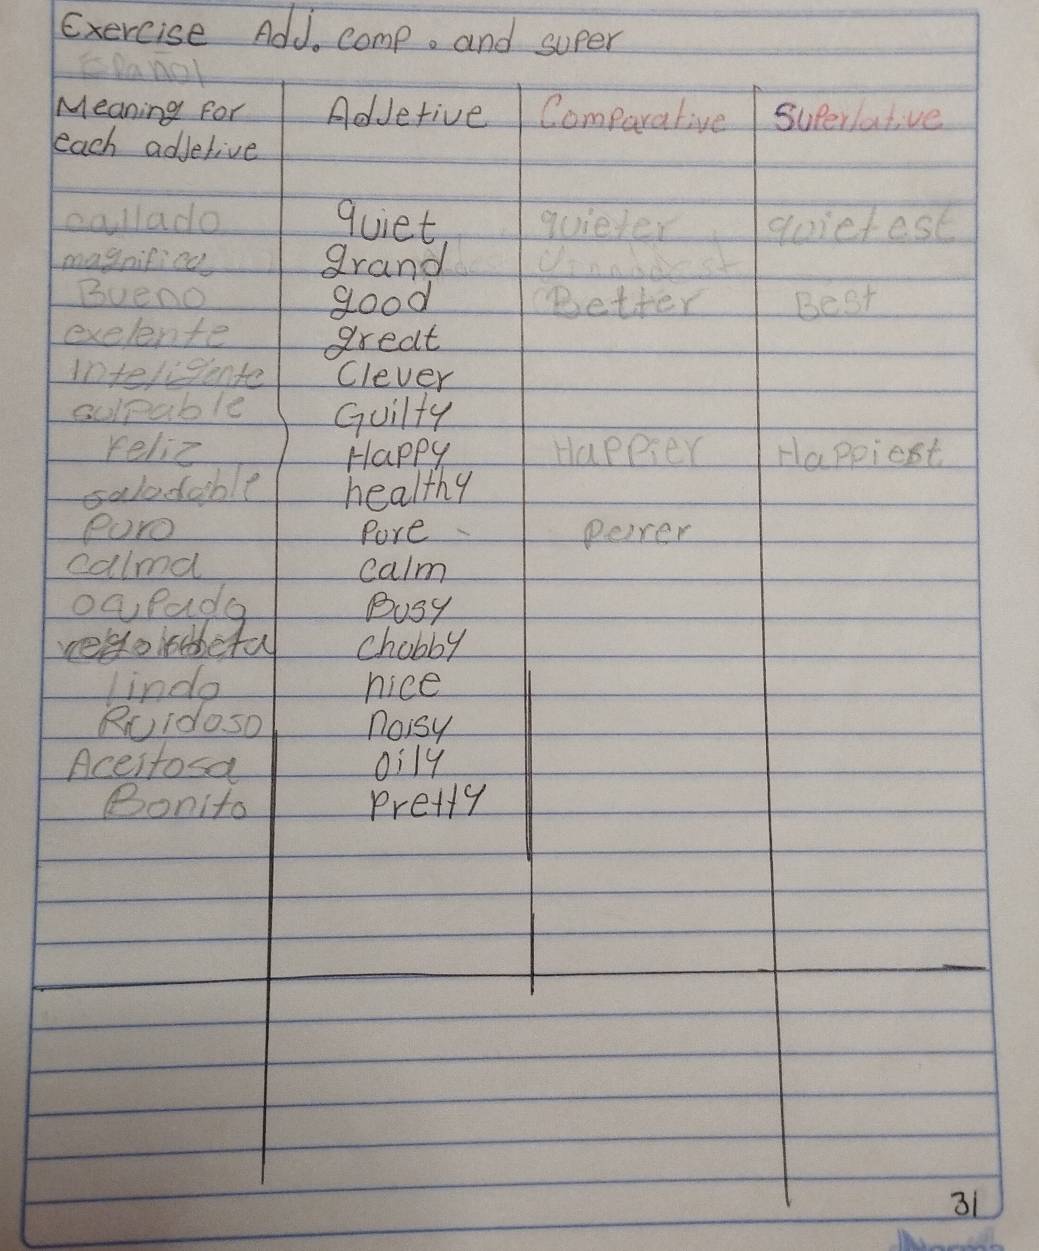 Exercise Add. comp. and super
Español
Meaning For each adjetive Adjetive Comparative Superlative
callado quiet quieter quietest
magnifica grand
Bueno good Better Best
exelente great
Inteligente Clever
culpable Guilty
Feliz Happy Happier Happiest
saludable healthy
Puro Pure
calma calm
Busy
chubby
lindo nice
Ruidoso noisy
Aceitosa oily
Bonito Pretty
31